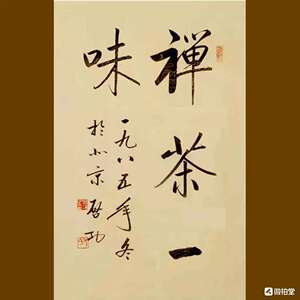 禅茶一
味
一九八五年冬
於北京 启功
微拍堂